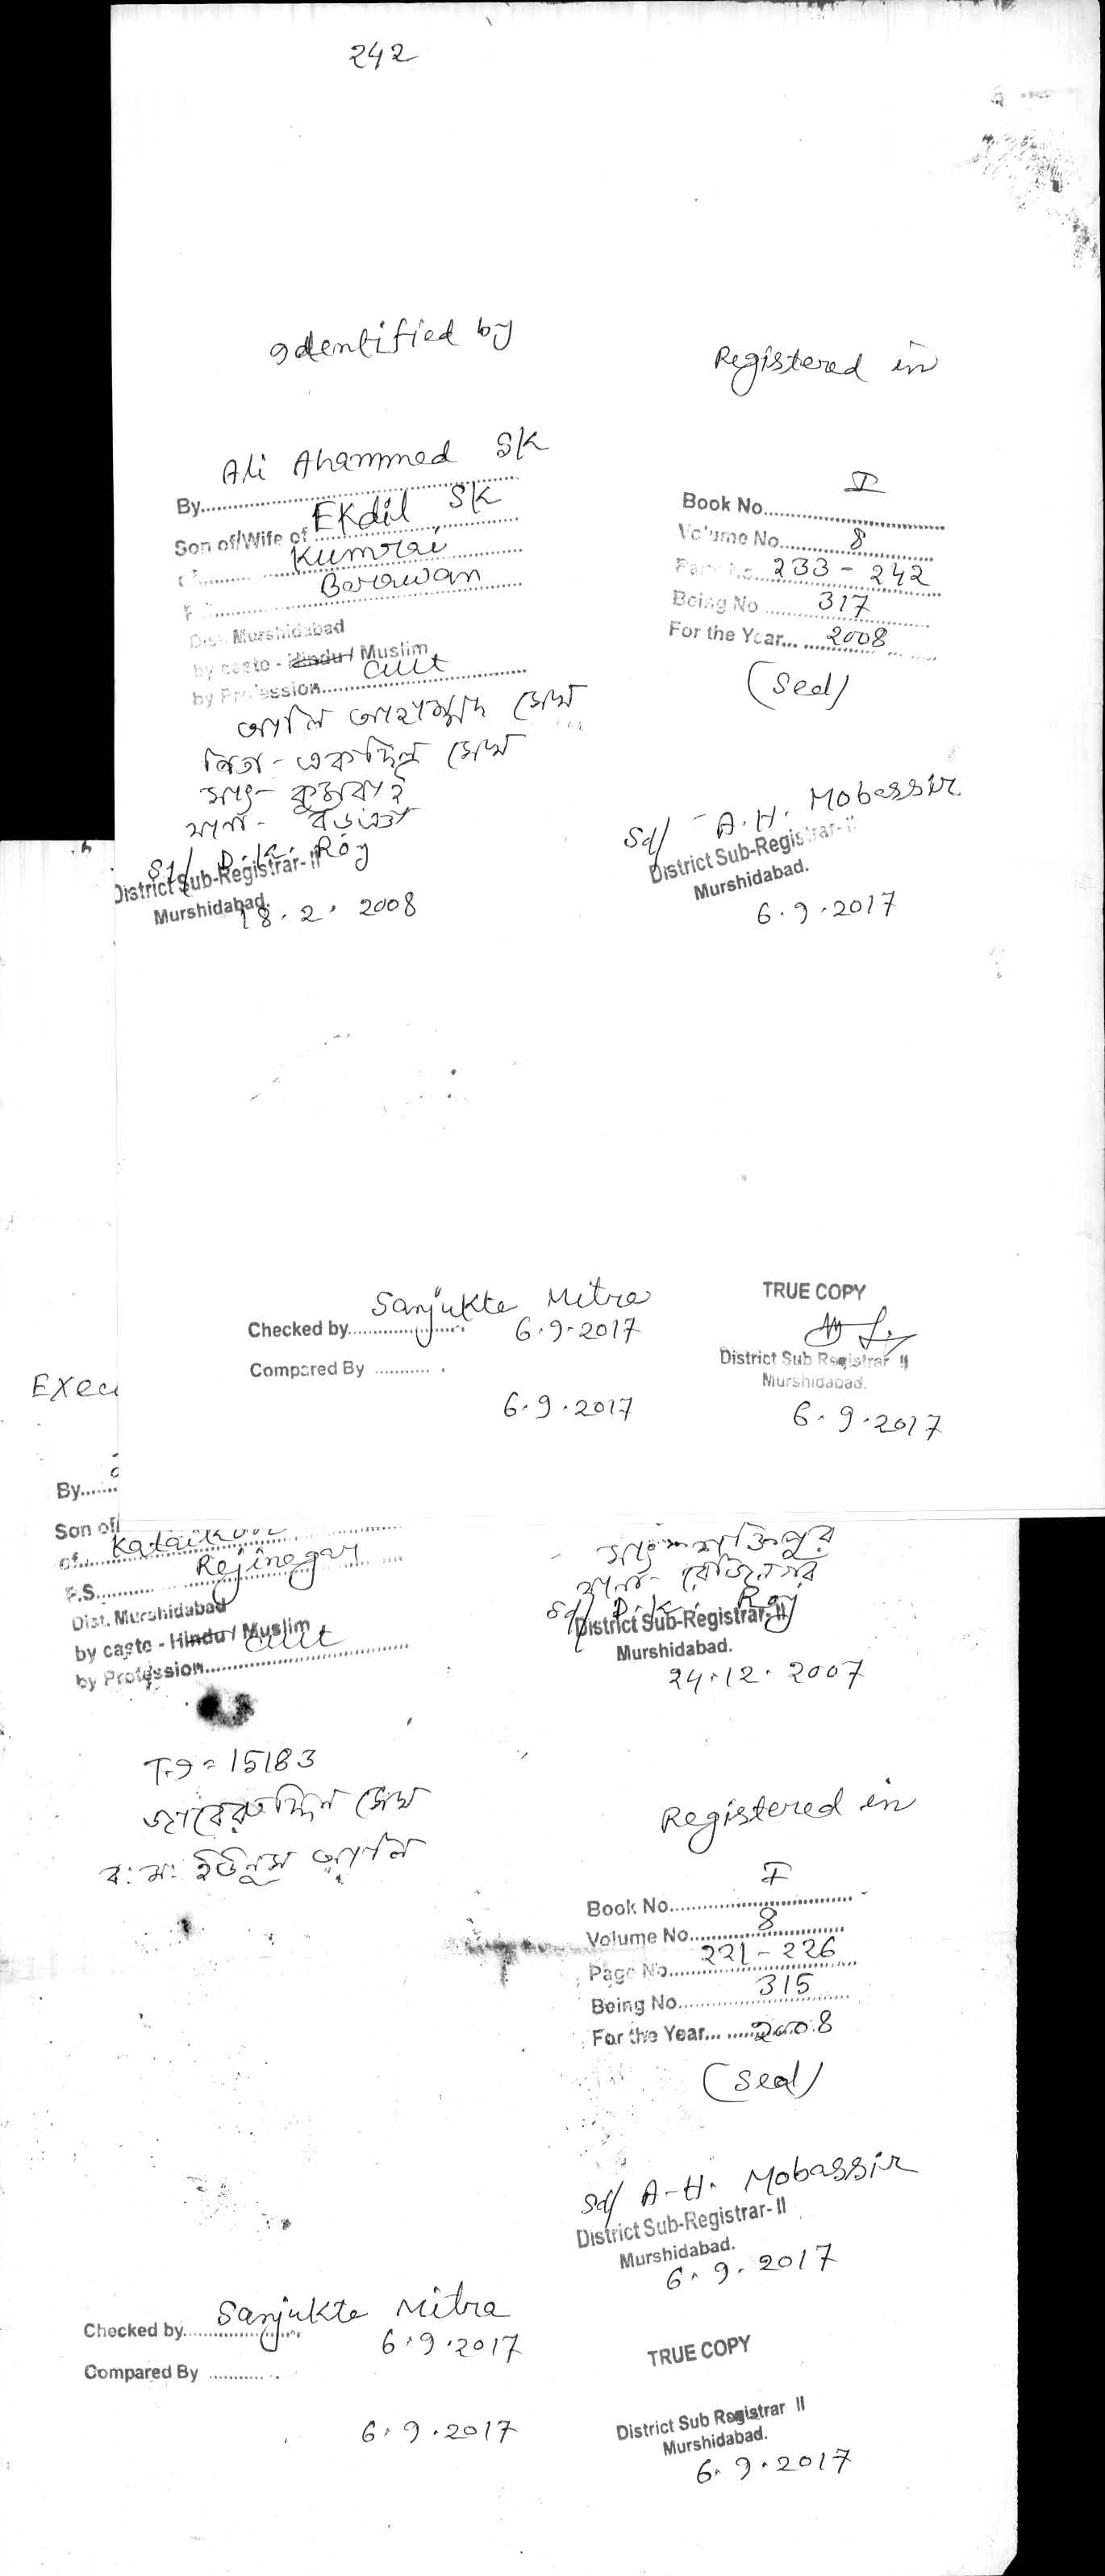 242
Identified by
Ali Ahammed SK
By
Son of/Wife of Ekdil SK
Kumrai
Barawan
Dist. Murshidabad
by caste - Hindu / Muslim
by Profession Cult
আলি আহাম্মদ সেখ
পিতা - একদিল সেখ
সাং - কুমরাই
থানা - বড়ঞা
Sd/ D. K. Roy
District Sub-Registrar-II
Murshidabad.
18. 2. 2008
Registered in
Book No. I
Volume No. 8
Page No. 233 - 242
Being No 317
For the Year... 2008
(Seal)
Sd/ - A. H. Mobassir
District Sub-Registrar-II
Murshidabad.
6. 9. 2017
Checked by Sanjukta Mitra
6.9.2017
Compared By
6.9.2017
TRUE COPY
District Sub Registrar II
Murshidabad.
6. 9. 2017
Execu
By
Son of/
of
P.S. Rejinagar
Dist. Murshidabad
by caste - Hindu / Muslim
by Profession Cult
15183
সেখ
ব: ম: ইউনুস আলি
থানা - রেজিনগর
Sd/ D. K. Roy
District Sub-Registrar-II
Murshidabad.
24.12. 2007
Registered in
Book No. I
Volume No. 8
Page No. 221 - 226
Being No. 315
For the Year... 2008
(Seal)
Sd/ A-H. Mobassir
District Sub-Registrar-II
Murshidabad.
6. 9. 2017
Checked by Sanjukta Mitra
6.9.2017
Compared By
6.9.2017
TRUE COPY
District Sub Registrar II
Murshidabad.
6. 9. 2017